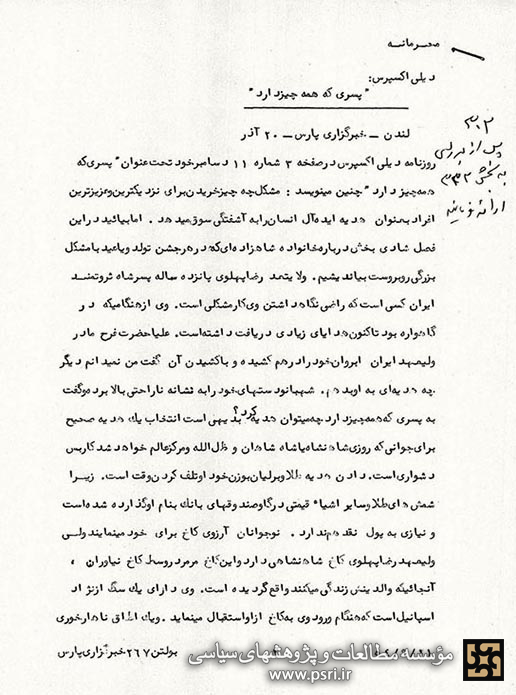 محرمانه
دیلی اکسپرس:
"پسری که همه چیز دارد"
لندن - خبرگزاری پارس - ۲۰ آذر
۳۰۲
پس از بررسی
به بخش ۳۳۲
ارائه فرمائید
روزنامه دیلی اکسپرس در صفحه ۳ شماره ۱۱ دسامبر خود تحت عنوان "پسری که
همه چیز دارد" چنین مینویسد : مشکل چه چیز خریدن برای نزدیکترین و عزیزترین
افراد بعنوان هدیه ایده آل انسان را به آشفتگی سوق میدهد . اما بیائید در این
فصل شادی بخش درباره خانواده شاهزاده ای که در هر جشن تولد و یا عید با مشکل
بزرگی روبروست بیاندیشیم . ولایتعهد رضا پهلوی پانزده ساله پسر شاه ثروتمند
ایران کسی است که راضی نگاهداشتن وی کار مشکلی است. وی از هنگامیکه در
گاهواره بود تاکنون هدایای زیادی دریافت داشته است. علیاحضرت فرح مادر
ولیعهد ایران ابروان خود را درهم کشیده و با کشیدن آن گفت من نمیدانم دیگر
چه هدیه ای به او بدهم . شهبانو دستهای خود را به نشانه ناراحتی بالا برده و گفت
به پسری که همه چیز دارد چه میتوان هدیه کرد؟ بدیهی است انتخاب یک هدیه صحیح
برای جوانی که روزی شاهنشاه یا شاه شاهان و ظل الله و مرکز عالم خواهد شد کار بس
دشواری است. دادن هدیه طلا و برلیان بوزن خود او تلف کردن وقت است. زیرا
شمش های طلا و سایر اشیاء قیمتی در گاوصندوقهای بانک بنام او گذارده شده است
و نیازی به پول نقد هم ندارد . نوجوانان آرزوی کاخ برای خود مینمایند ولی
ولیعهد رضا پهلوی کاخ شاهنشاهی دارد و این کاخ مرمر در وسط کاخ نیاوران ،
آنجائیکه والدینش زندگی میکنند واقع گردیده است. وی دارای یک سگ از نژاد
اسپانیل است که هنگام ورود وی به کاخ از او استقبال مینماید. و یک اطاق ناهارخوری
بولتن ۲۶۷ خبرگزاری پارس
مؤسسه مطالعات و پژوهشهای سیاسی
www.psri.ir